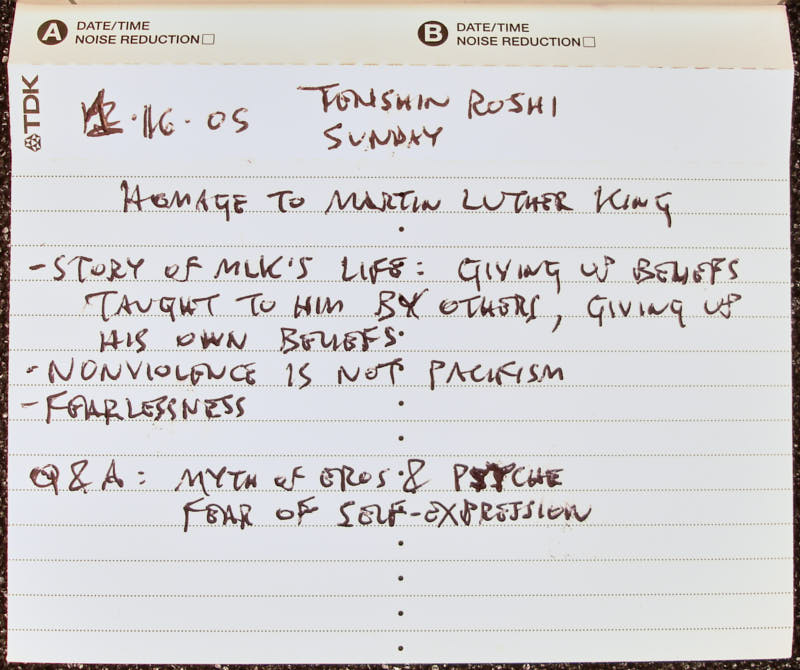 A DATE/TIME
NOISE REDUCTION
B DATE/TIME
NOISE REDUCTION
TDK
·16·05
TENSHIN ROSHI
SUNDAY
HOMAGE TO MARTIN LUTHER KING
- STORY OF MLK'S LIFE: GIVING UP BELIEFS
TAUGHT TO HIM BY OTHERS, GIVING UP
HIS OWN BELIEFS.
- NONVIOLENCE IS NOT PACIFISM
- FEARLESSNESS
Q & A: MYTH OF EROS & PSYCHE
FEAR OF SELF-EXPRESSION